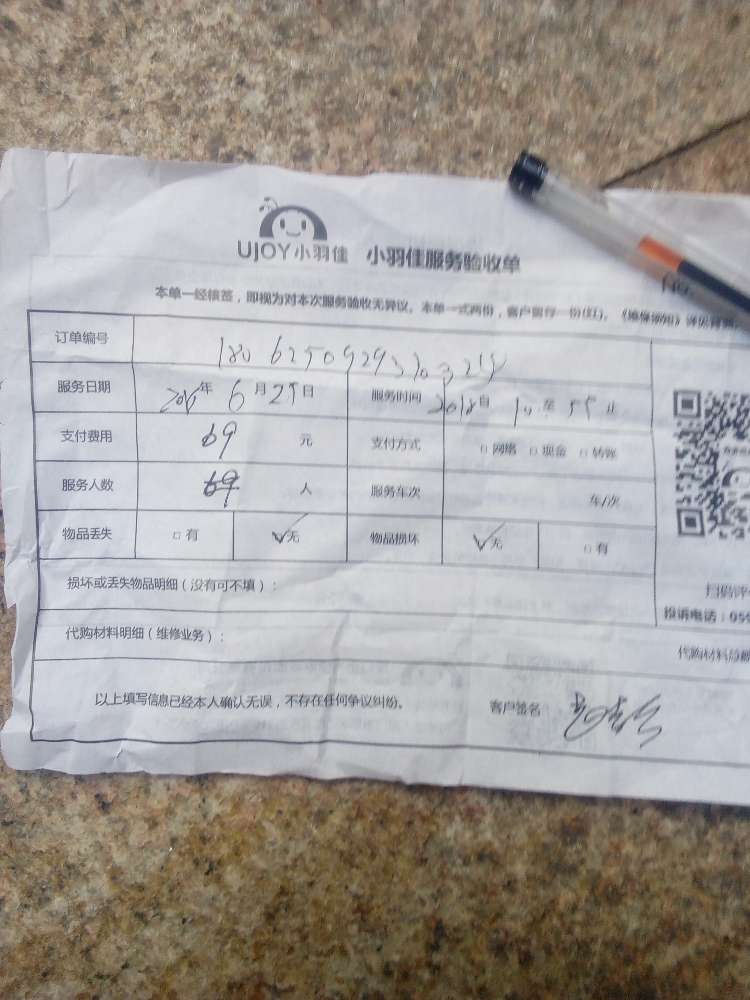 UJOY小羽佳 小羽佳服务验收单
No.
本单一经核签，即视为对本次服务验收无异议。本单一式两份，客户留存一份(红)。《维修须知》详见背面。
订单编号
服务日期 年 6 月 25 日 服务时间 2018 自 至 止
支付费用 69 元 支付方式 □ 网络 □ 现金 □ 转账
服务人数 69 人 服务车次 车/次
物品丢失 □ 有 ✓无 物品损坏 ✓无 □ 有
损坏或丢失物品明细（没有可不填）：
扫码评
投诉电话：059
代购材料明细（维修业务）：
代购材料总额
以上填写信息已经本人确认无误，不存在任何争议纠纷。 客户签名：